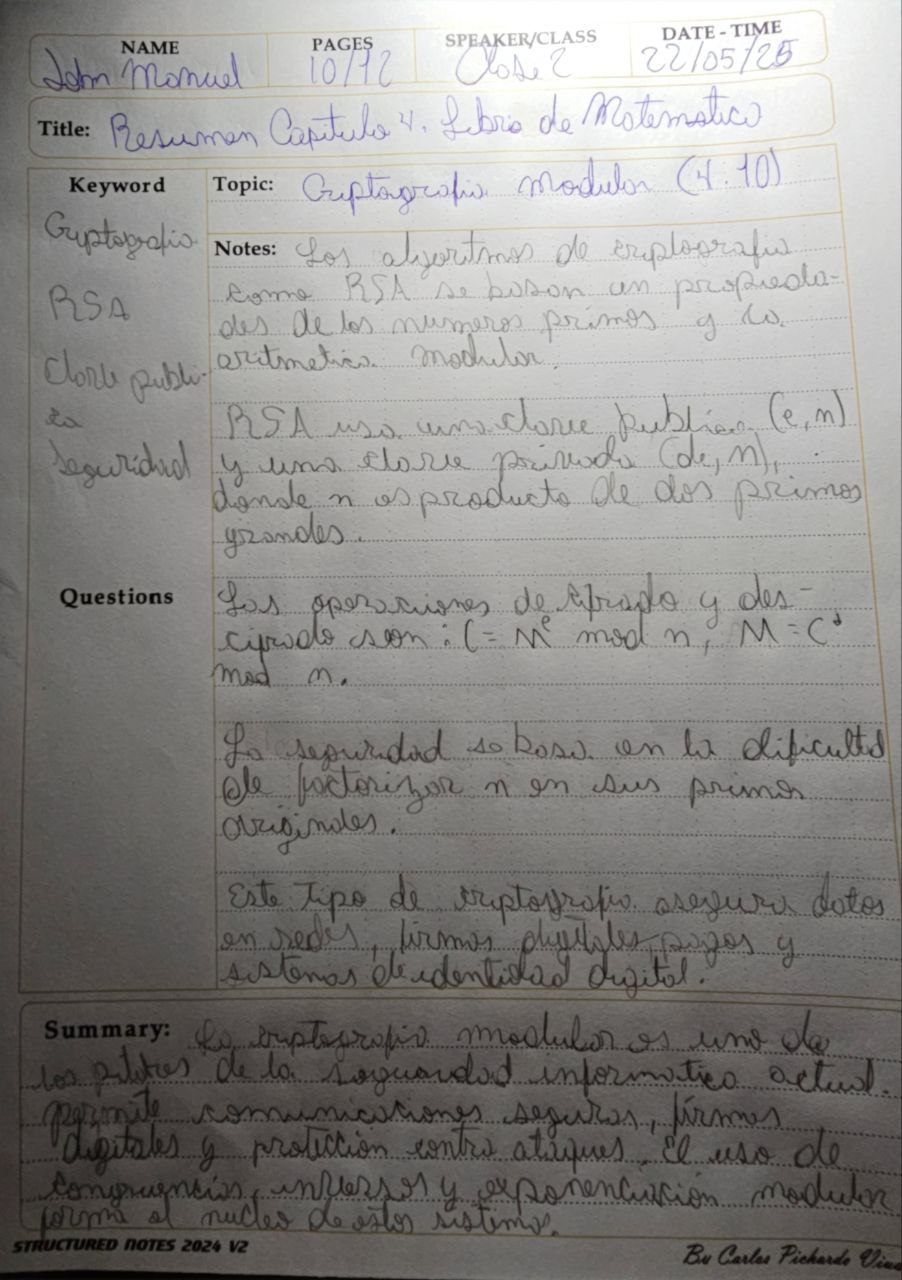 NAME PAGES SPEAKER/CLASS DATE - TIME
John Manuel 10/12 Clase 2 22/05/25
Title: Resumen Capitulo 4. Libro de Matematica
Keyword
Topic: Criptografia Modular (4.10)
Criptografia
RSA
Clave publi-
ca
Seguridad
Notes: Los algoritmos de criptografia
como RSA se basan en propieda-
des de los numeros primos y la
aritmetica modular.
RSA usa una clave publica (e, n)
y una clave privada (d, n),
donde n es producto de dos primos
grandes.
Questions
Las operaciones de cifrado y des-
cifrado son: C = M^e mod n, M = C^d
mod n.
La seguridad se basa en la dificultad
de factorizar n en sus primos
originales.
Este tipo de criptografia asegura datos
en redes, firmas digitales pagos y
sistemas de identidad digital.
Summary: La criptografia modular es uno de
los pilares de la seguridad informatica actual.
permite comunicaciones seguras, firmas
digitales y protección contra ataques. El uso de
congruencias, inversos y exponenciación modular
forma el nucleo de estos sistemas.
STRUCTURED NOTES 2024 V2
By Carlos Pichardo